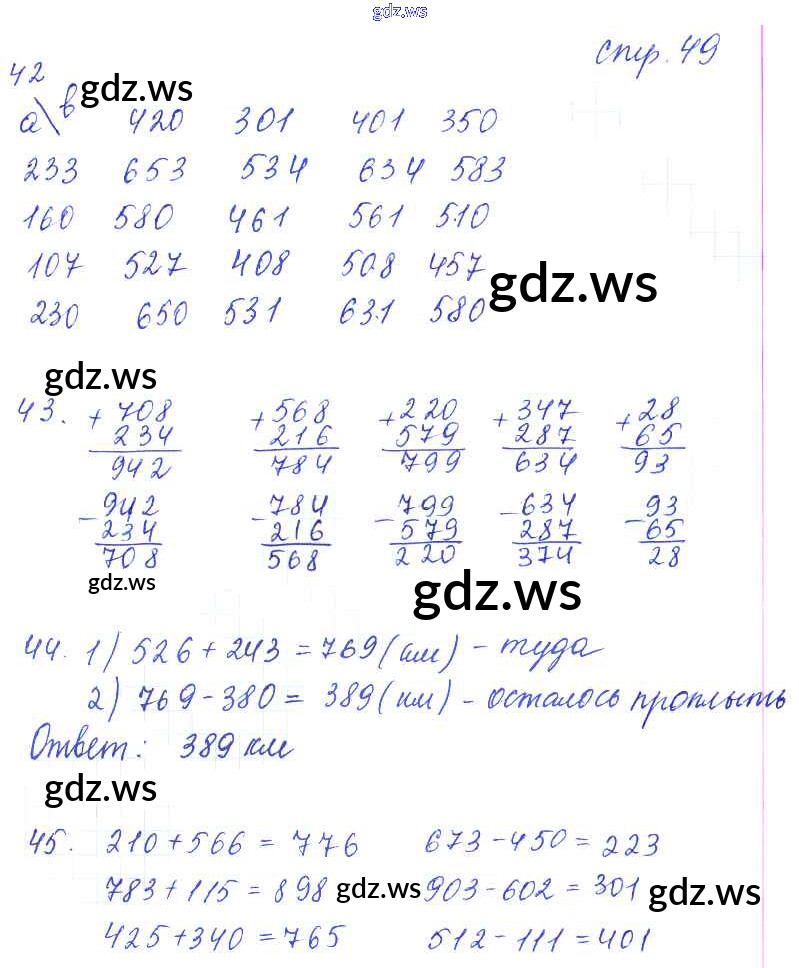 gdz.ws
стр. 49
42
gdz.ws
а\в 420 301 401 350
233 653 534 634 583
160 580 461 561 510
107 527 408 508 457
gdz.ws
230 650 531 631 580
gdz.ws
43. +708 +568 +220 +347 +28
234 216 579 287 65
942 784 799 634 93
-942 -784 -799 -634 -93
234 216 579 287 65
708 568 220 374 28
gdz.ws gdz.ws
44. 1) 526 + 243 = 769 (км) - туда
2) 769 - 380 = 389 (км) - осталось проплыть
Ответ: 389 км
gdz.ws
45. 210 + 566 = 776 673 - 450 = 223
783 + 115 = 898 gdz.ws 903 - 602 = 301 gdz.ws
425 + 340 = 765 512 - 111 = 401